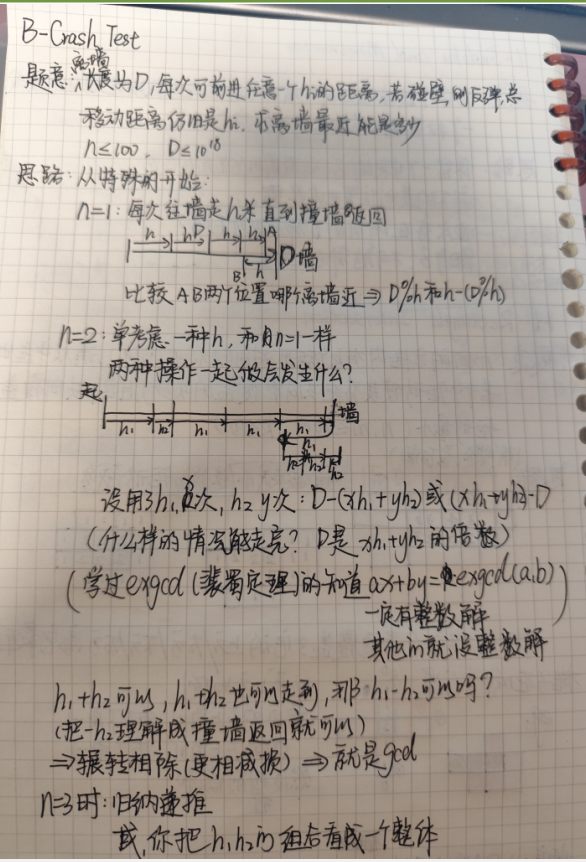 B-Crash Test
题意: 离墙长度为D,每次可前进任意一个hi的距离,若碰壁,则反弹,总
移动距离仍旧是hi,求离墙最近能是多少
n≤100, D≤10^18
思路: 从特殊的开始:
n=1: 每次往墙走h米直到撞墙返回
h h h h A
B h D 墙
比较AB两个位置哪个离墙近 ⇒ D%h和h-(D%h)
n=2: 单考虑一种h,和n=1一样
两种操作一起做会发生什么?
起 墙
h₁ h₂ h₁ h₁ h₁
h₁
h₂ h₂ h₂
设用了h₁,x次,h₂ y次: D-(xh₁+yh₂)或(xh₁+yh₂)-D
(什么样的情况能走完? D是xh₁+yh₂的倍数)
(学过exgcd(裴蜀定理)的知道ax+by=exgcd(a,b)
一定有整数解
其他的就没整数解)
h₁+h₂可以,h₁+h₂也可以走到,那h₁-h₂可以吗?
(把-h₂理解成撞墙返回就可以)
⇒辗转相除(更相减损) ⇒ 就是gcd
n=3时: 归纳递推
或,你把h₁h₂的组合看成一个整体